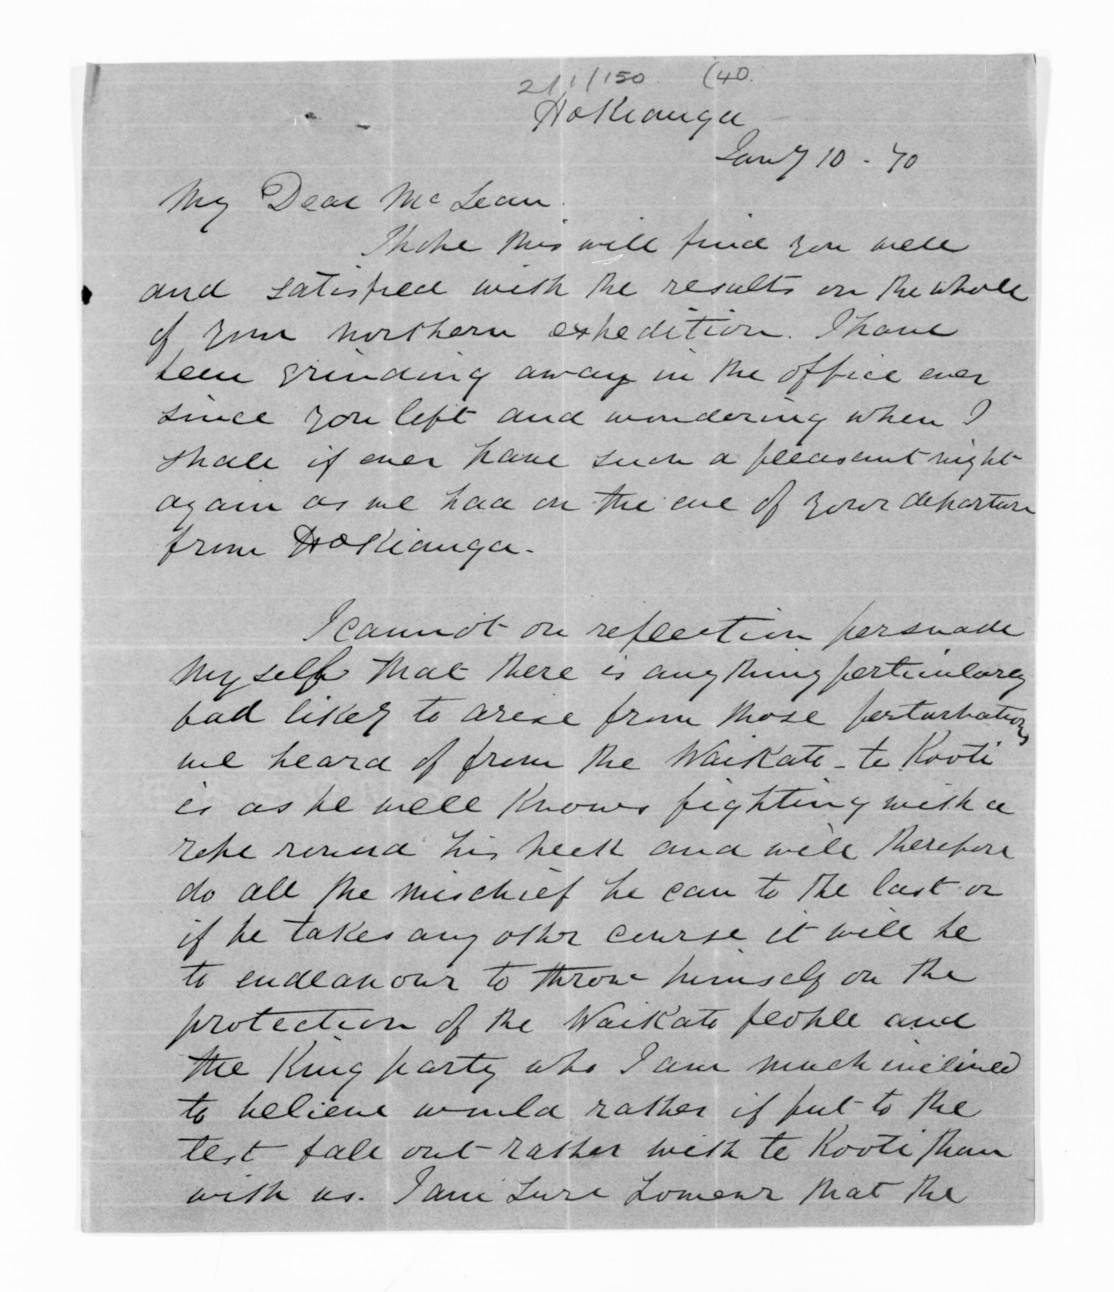 21/1/150 (40.
Hokianga
Jany 10 - 70
My Dear McLean.
I hope this will find you well
and satisfied with the results on the whole
of your northern expedition. I have
been grinding away in the office ever
since you left and wondering when I
shall if ever have such a pleasant night
again as we had on the eve of your departure
from Hokianga.
I cannot on reflection persuade
myself that there is anything perticularey
bad likey to arise from those perturbations
we heard of from the Waikato - te Kooti
is as he well knows fighting with a
rope round his neck and will therefore
do all the mischief he can to the last or
if he takes any other course it will be
to endeavour to throw himself on the
protection of the Waikato people and
the King party who I am much inclined
to believe would rather if put to the
test fall out rather with te Kooti than
with us. I am sure somehow that the